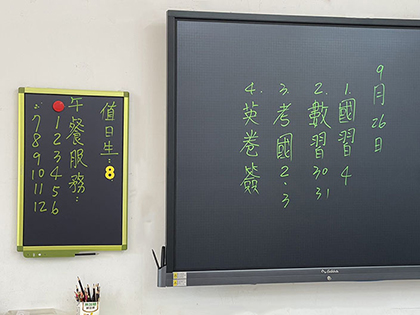 9月26日
1. 國習 4
2. 數習 30 31
3. 考國 2、3
4. 英卷簽
值日生:8
午餐服務:
1 2 3 4 5 6
7 8 9 10 11 12